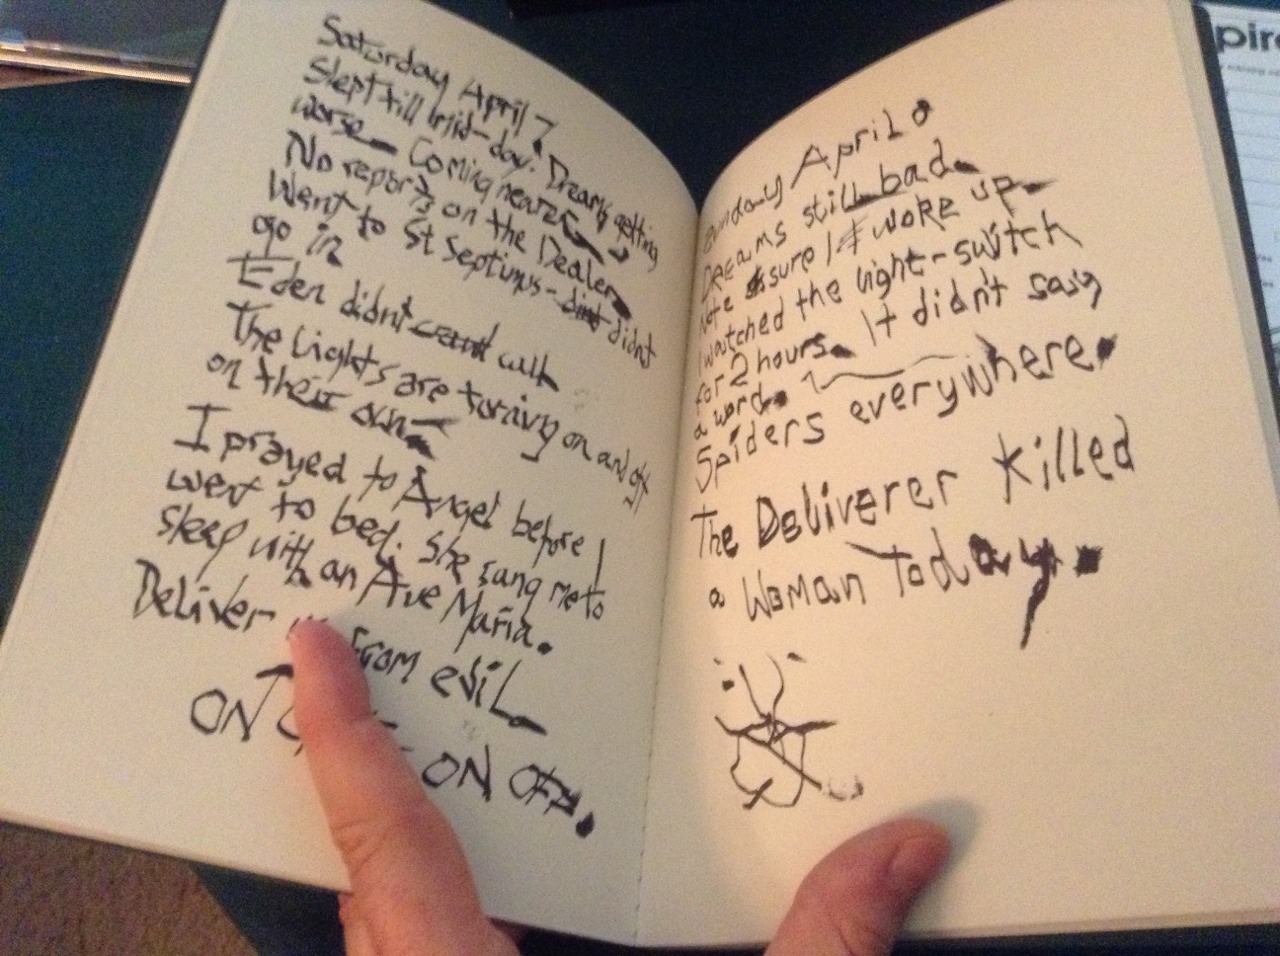 Saturday April 7
Slept till mid-day. Dreams getting
worse. Coming nearer.
No reports on the Dealer.
Went to St Septimus - didnt
go in.
Eden didnt call
The Lights are turning on and off
on their own
I prayed to Angel before I
went to bed. She sang me to
sleep with an Ave Maria.
Deliver from evil
ON ON OFF.
Sunday April 8
Dreams still bad.
Note sure I woke up.
I watched the light-switch
for 2 hours. It didn't say
a word.
Spiders everywhere.
The Deliverer Killed
a Woman Today.